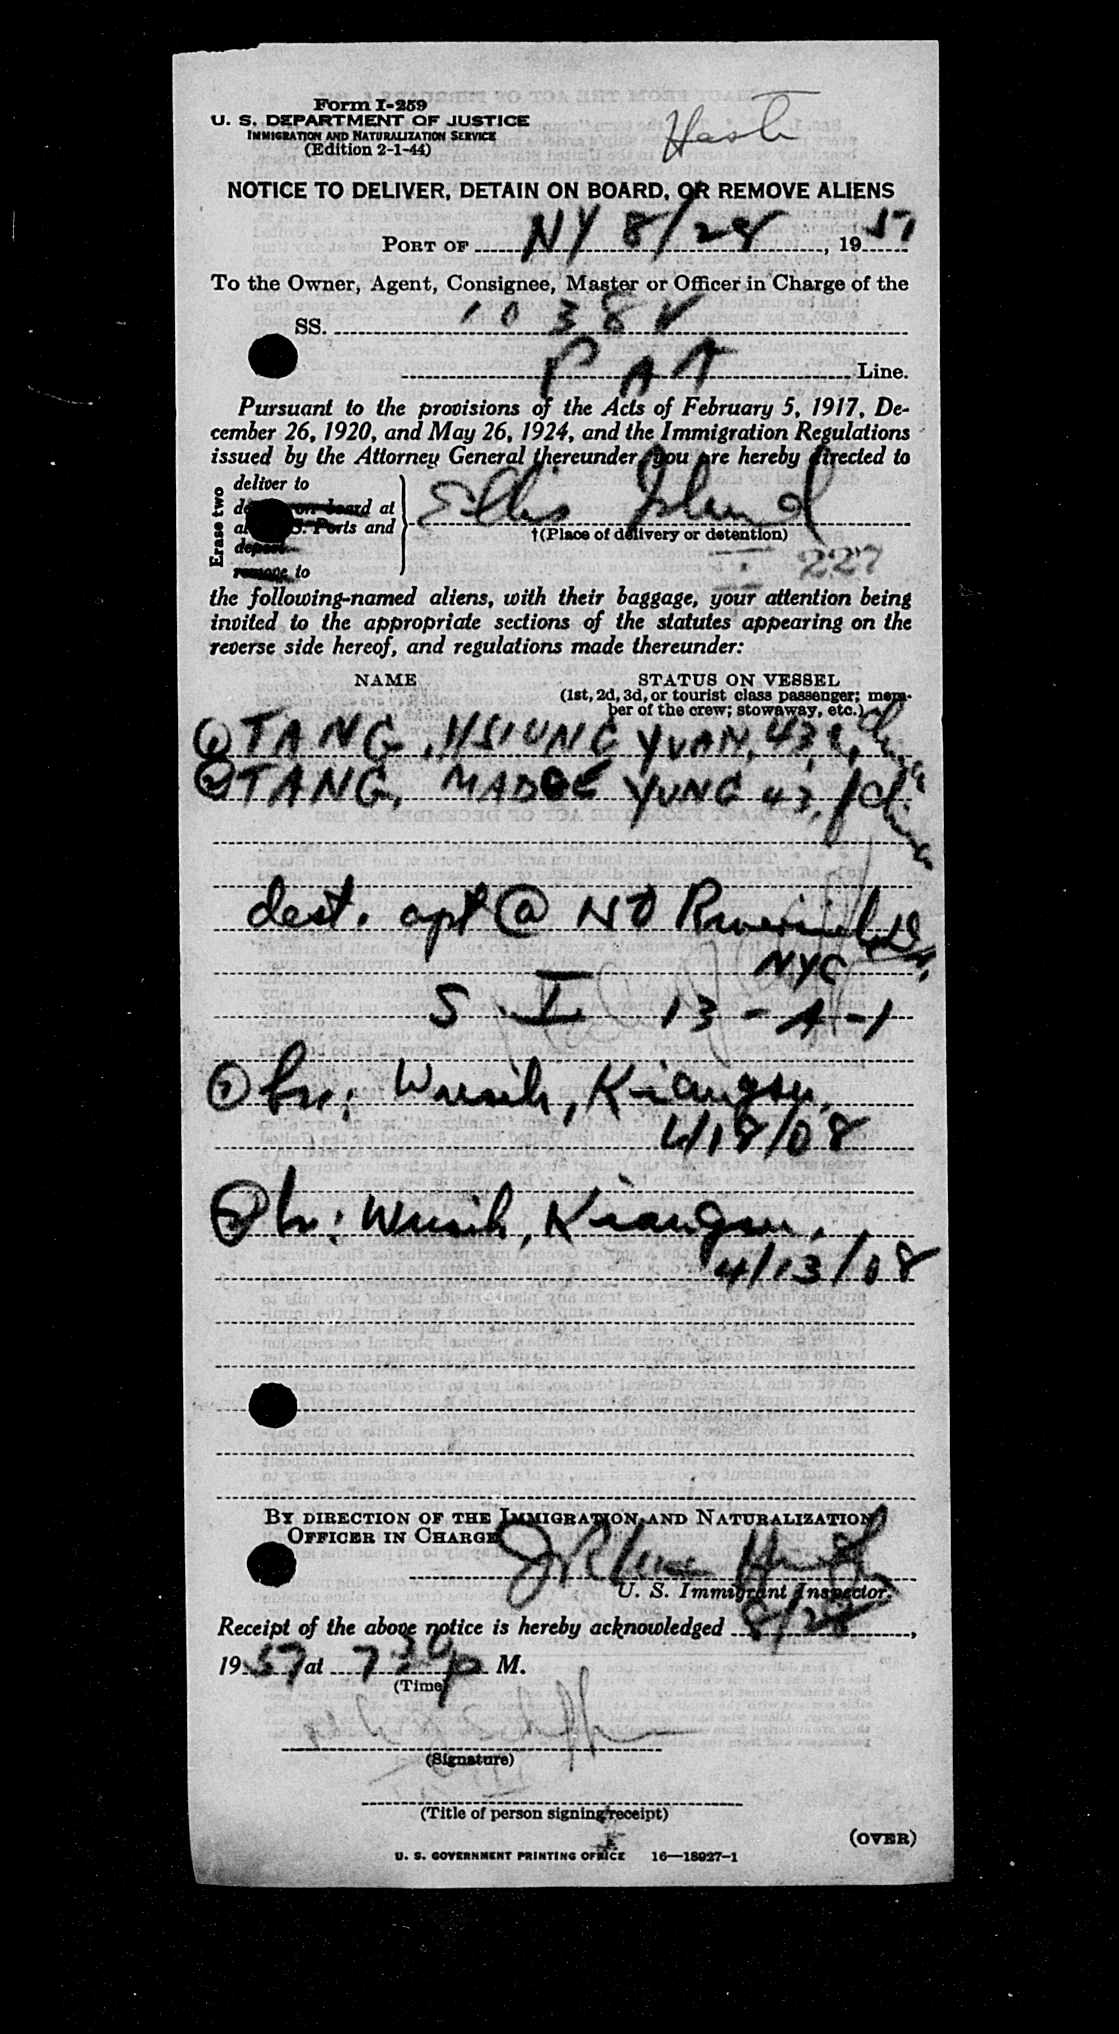 Form I-259
U. S. DEPARTMENT OF JUSTICE
IMMIGRATION AND NATURALIZATION SERVICE
(Edition 2-1-44)
NOTICE TO DELIVER, DETAIN ON BOARD, OR REMOVE ALIENS
PORT OF NY 8/28, 1957
To the Owner, Agent, Consignee, Master or Officer in Charge of the
SS. 1038V
PAA Line.
Pursuant to the provisions of the Acts of February 5, 1917, De-
cember 26, 1920, and May 26, 1924, and the Immigration Regulations
issued by the Attorney General thereunder, you are hereby directed to
Erase two
deliver to
on board at
Ports and
remove to
Ellis Island
†(Place of delivery or detention)
I 227
the following-named aliens, with their baggage, your attention being
invited to the appropriate sections of the statutes appearing on the
reverse side hereof, and regulations made thereunder:
NAME STATUS ON VESSEL
(1st, 2d, 3d, or tourist class passenger; mem-
ber of the crew; stowaway, etc.)
① TANG, HSIUNG YUAN, 43, China
② TANG, YUNG 43, f China
dest. apt @ Riverside Dr.
NYC
S I 13-A-1
① bn: Wusih, Kiangsu,
4/18/08
② bn: Wusih, Kiangsu,
4/13/08
BY DIRECTION OF THE IMMIGRATION AND NATURALIZATION
OFFICER IN CHARGE
U. S. Immigrant Inspector.
Receipt of the above notice is hereby acknowledged 8/28,
1957 at 730 p. M.
(Time)
(Signature)
(Title of person signing receipt)
(OVER)
U. S. GOVERNMENT PRINTING OFFICE 16—18927-1